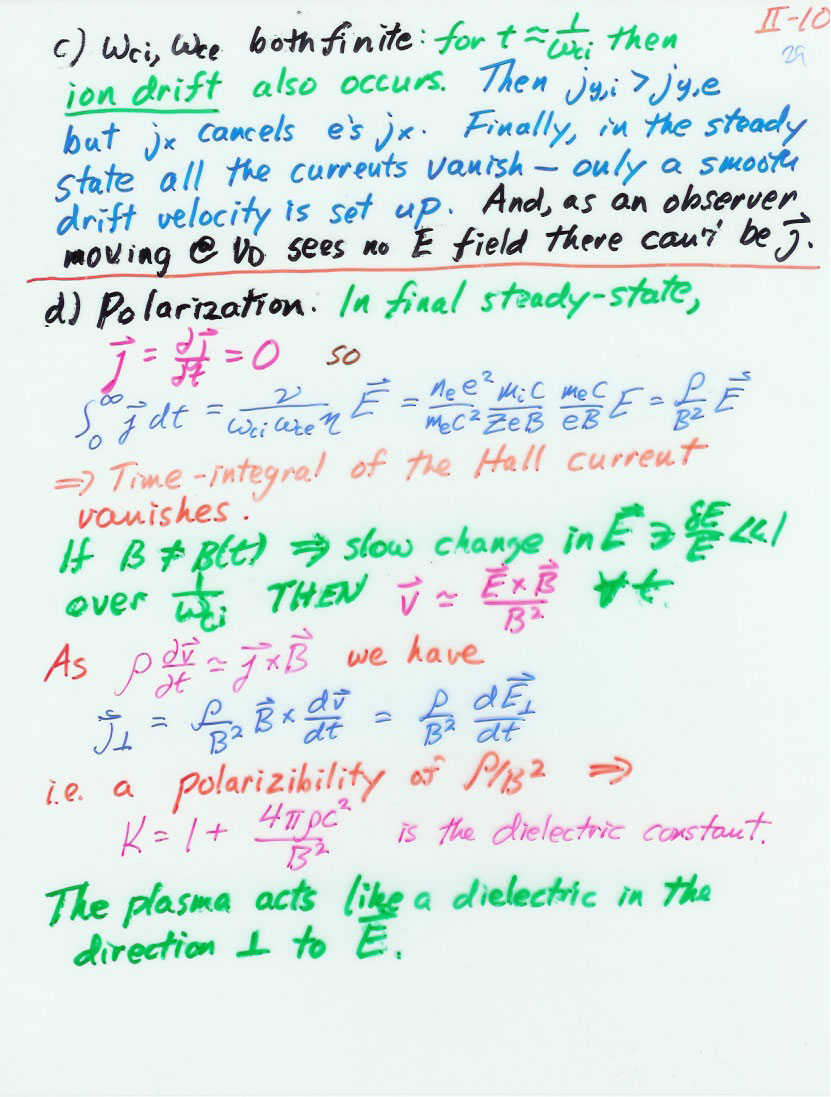 II-10
29
c) ωci, ωce both finite: for t ≈ 1/ωci then
ion drift also occurs. Then jy,i > jy,e
but jx cancels e's jx. Finally, in the steady
state all the currents vanish — only a smooth
drift velocity is set up. And, as an observer
moving @ VD sees no E field there can't be j⃗.
d) Polarization. In final steady-state,
j⃗ = ∂j⃗/∂t = 0 so
∫₀^∞ j⃗ dt = ν/(ωci ωce η) E⃗ = (nₑe²/mₑc²) (mᵢc/ZeB) (mₑc/eB) E = ρ/B² E⃗
⇒ Time-integral of the Hall current
vanishes.
If B ≠ B(t) ⇒ slow change in E⃗ ∋ δE/E << 1
over 1/ωci THEN v⃗ ≃ (E⃗ × B⃗)/B² ∀ t.
As ρ ∂v⃗/∂t ≃ j⃗ × B⃗ we have
j⃗⊥ = ρ/B² B⃗ × dv⃗/dt = ρ/B² dE⃗⊥/dt
i.e. a polarizibility of ρ/B² ⇒
K = 1 + 4πρc²/B² is the dielectric constant.
The plasma acts like a dielectric in the
direction ⊥ to E⃗.